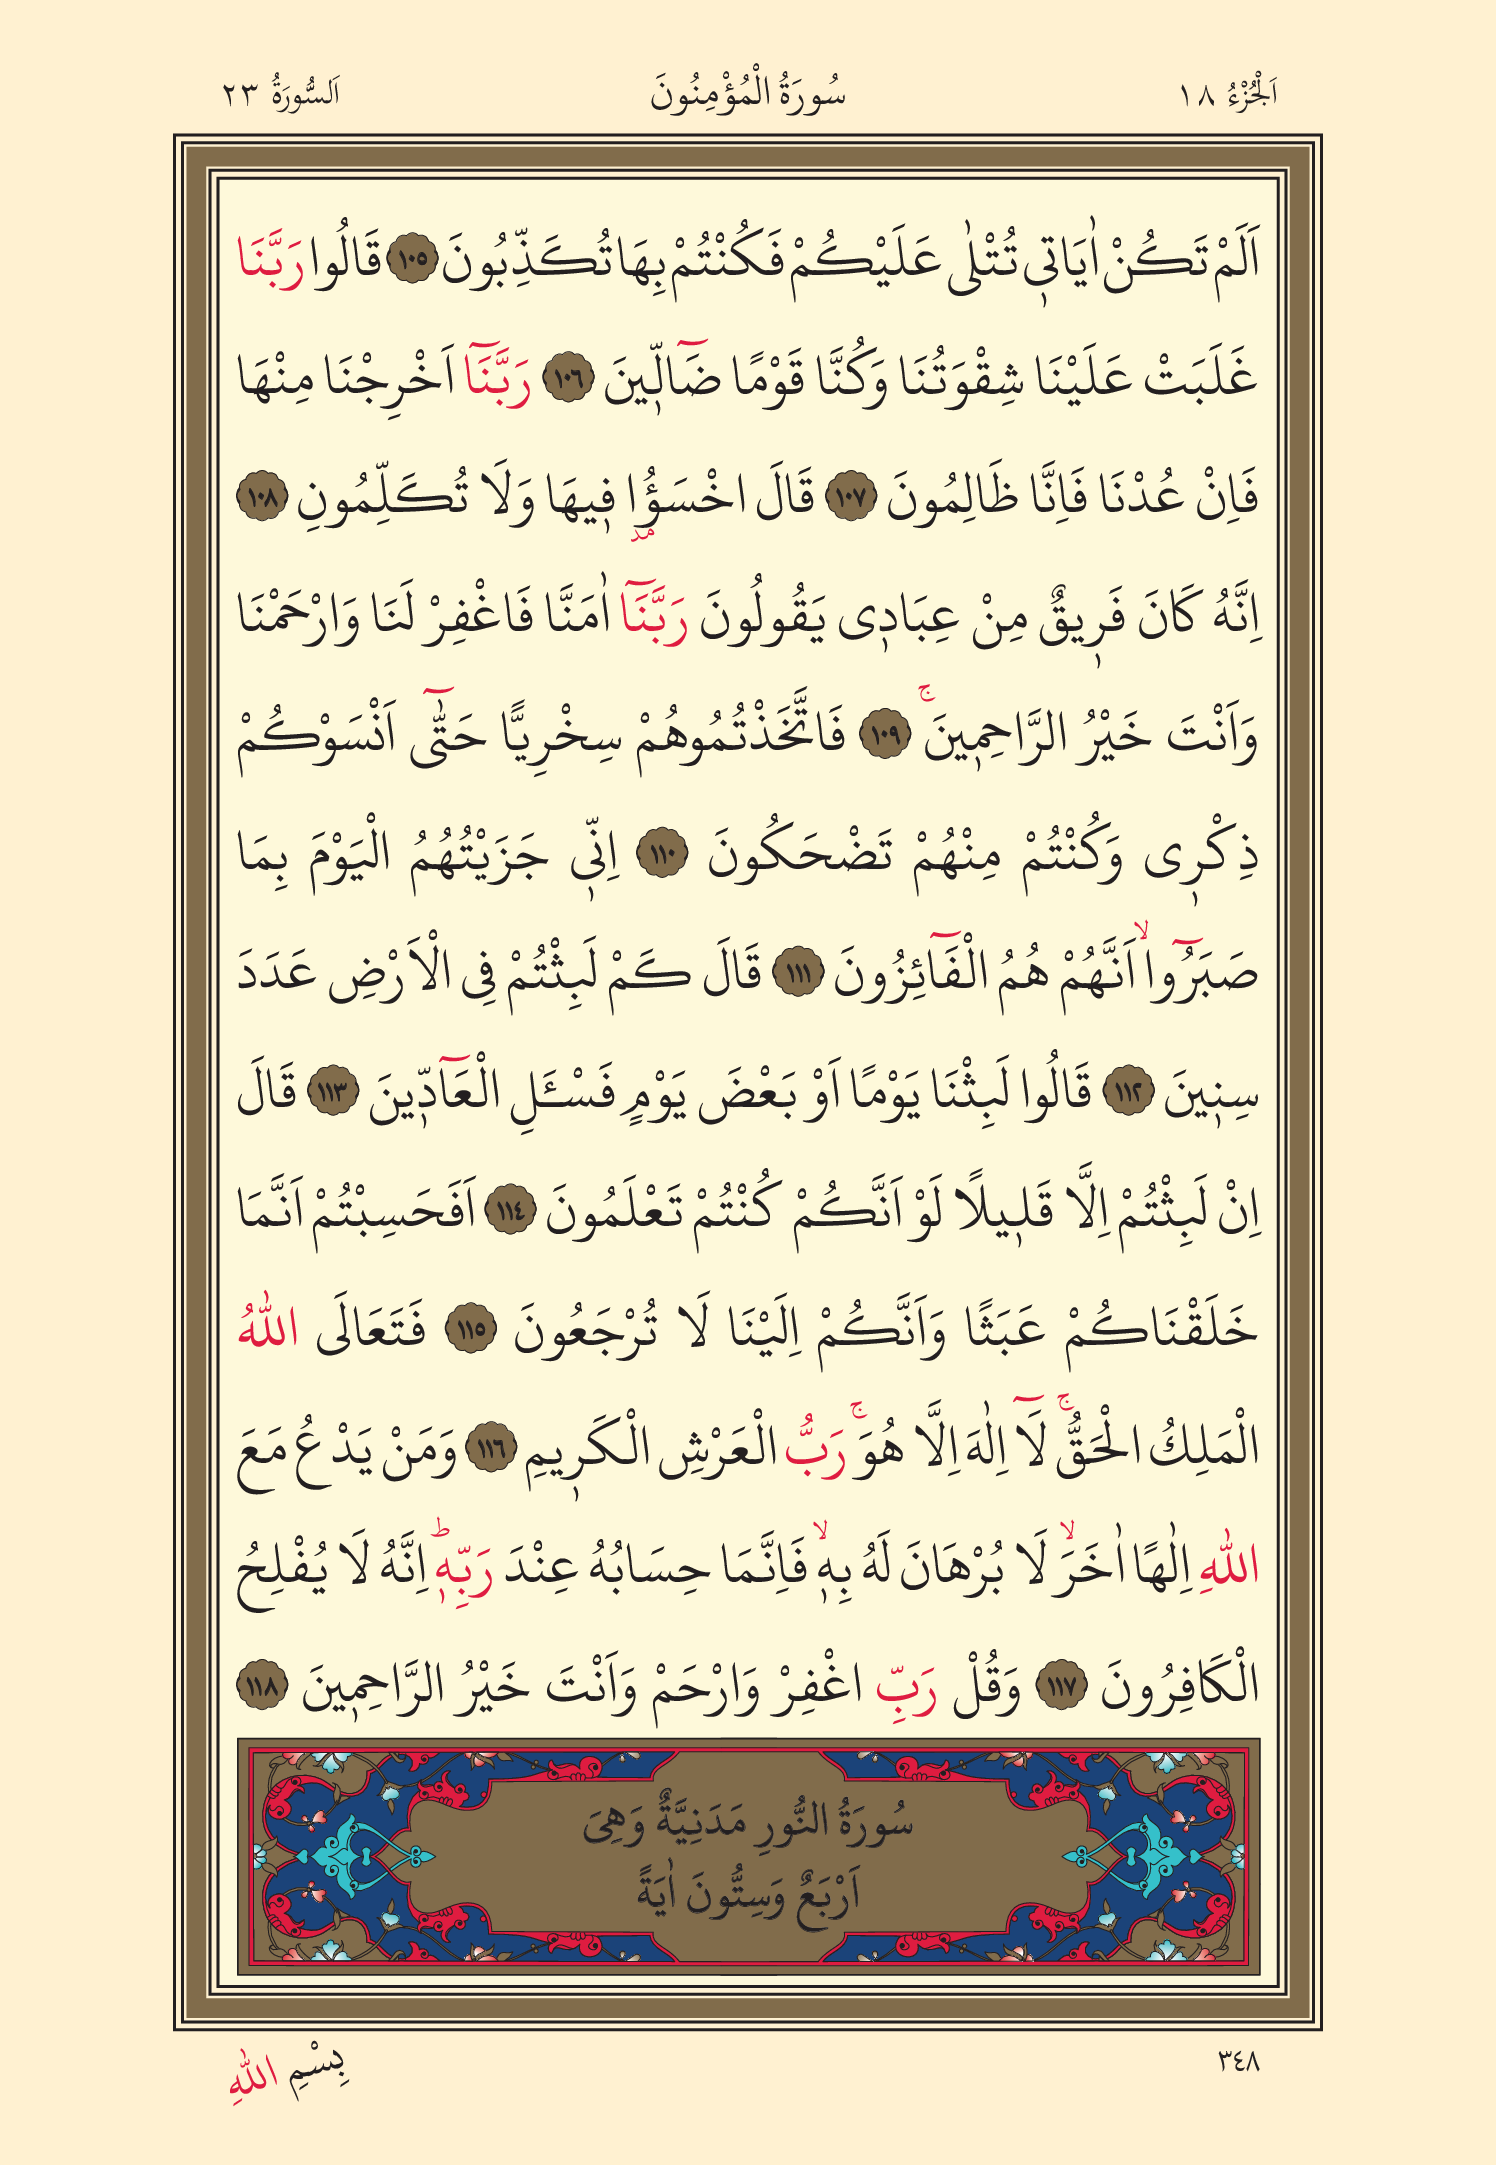 اَلْجُزْءُ ١٨
سُورَةُ الْمُؤْمِنُونَ
اَلسُّورَةُ ٢٣
اَلَمْ تَكُنْ اٰيَاتٖي تُتْلٰى عَلَيْكُمْ فَكُنْتُمْ بِهَا تُكَذِّبُونَ ١٠٥ قَالُوا رَبَّنَا
غَلَبَتْ عَلَيْنَا شِقْوَتُنَا وَكُنَّا قَوْمًا ضَٓالّٖينَ ١٠٦ رَبَّنَٓا اَخْرِجْنَا مِنْهَا
فَاِنْ عُدْنَا فَاِنَّا ظَالِمُونَ ١٠٧ قَالَ اخْسَؤُ۫ا فٖيهَا وَلَا تُكَلِّمُونِ ١٠٨
اِنَّهُ كَانَ فَرٖيقٌ مِنْ عِبَادٖى يَقُولُونَ رَبَّنَٓا اٰمَنَّا فَاغْفِرْ لَنَا وَارْحَمْنَا
وَاَنْتَ خَيْرُ الرَّاحِمٖينَۚ ١٠٩ فَاتَّخَذْتُمُوهُمْ سِخْرِيًّا حَتّٰٓى اَنْسَوْكُمْ
ذِكْرٖى وَكُنْتُمْ مِنْهُمْ تَضْحَكُونَ ١١٠ اِنّٖى جَزَيْتُهُمُ الْيَوْمَ بِمَا
صَبَرُٓواۙ اَنَّهُمْ هُمُ الْفَٓائِزُونَ ١١١ قَالَ كَمْ لَبِثْتُمْ فِى الْاَرْضِ عَدَدَ
سِنٖينَ ١١٢ قَالُوا لَبِثْنَا يَوْمًا اَوْ بَعْضَ يَوْمٍ فَسْـَٔلِ الْعَٓادّٖينَ ١١٣ قَالَ
اِنْ لَبِثْتُمْ اِلَّا قَلٖيلًا لَوْ اَنَّكُمْ كُنْتُمْ تَعْلَمُونَ ١١٤ اَفَحَسِبْتُمْ اَنَّمَا
خَلَقْنَاكُمْ عَبَثًا وَاَنَّكُمْ اِلَيْنَا لَا تُرْجَعُونَ ١١٥ فَتَعَالَى اللّٰهُ
الْمَلِكُ الْحَقُّۚ لَٓا اِلٰهَ اِلَّا هُوَۚ رَبُّ الْعَرْشِ الْكَرٖيمِ ١١٦ وَمَنْ يَدْعُ مَعَ
اللّٰهِ اِلٰهًا اٰخَرَۙ لَا بُرْهَانَ لَهُ بِهٖۙ فَاِنَّمَا حِسَابُهُ عِنْدَ رَبِّهٖؕ اِنَّهُ لَا يُفْلِحُ
الْكَافِرُونَ ١١٧ وَقُلْ رَبِّ اغْفِرْ وَارْحَمْ وَاَنْتَ خَيْرُ الرَّاحِمٖينَ ١١٨
سُورَةُ النُّورِ مَدَنِيَّةٌ وَهِىَ
اَرْبَعٌ وَسِتُّونَ اٰيَةً
٣٤٨
بِسْمِ اللّٰهِ